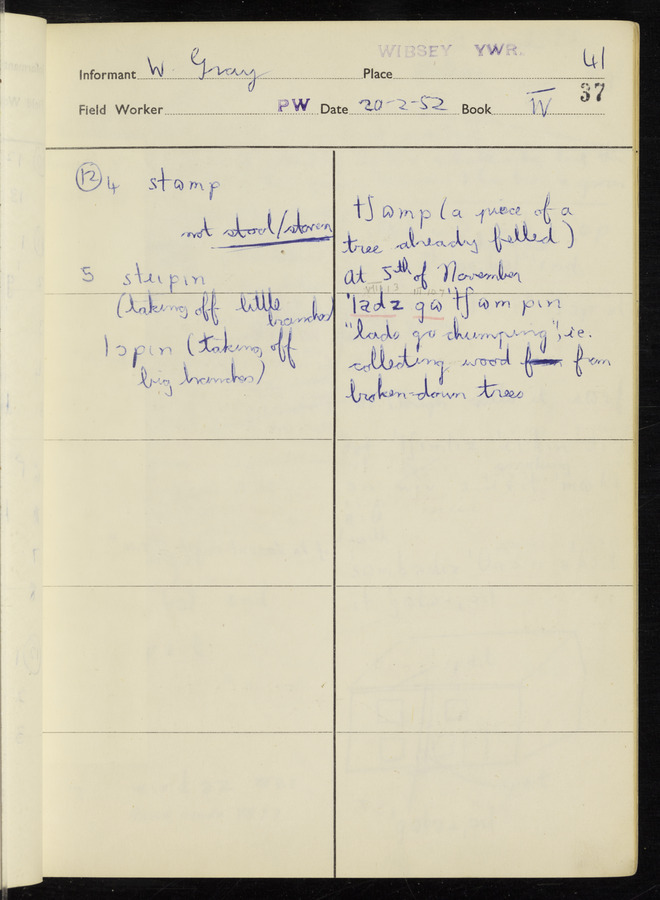 WIBSEY YWR.
41
Informant W. Gray Place
37
Field Worker PW Date 20-2-52 Book IV
12 4 stɷmp
not stool/stoven
5 stripin
(taking off little
branches)
lɔpin (taking off
big branches)
tʃɷmp (a piece of a
tree already felled)
at 5th of November
'ladz gɷ 'tʃɷmpin
"lads go chumping", i.e.
collecting wood from
broken-down trees